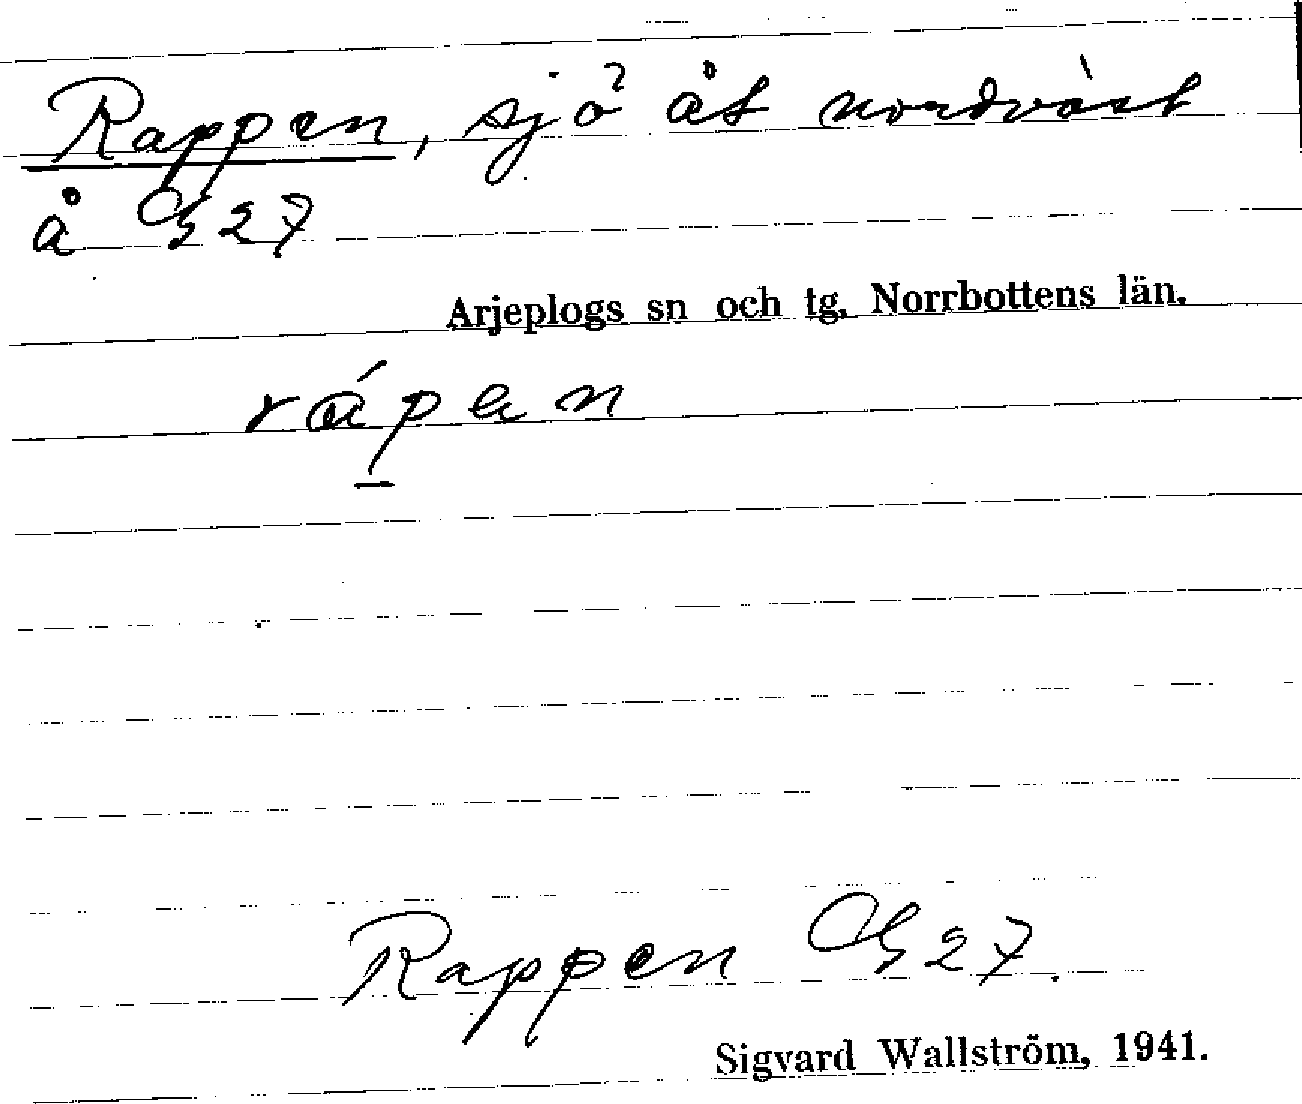 Rappen, sjö åt nordväst
å G27
Arjeplogs sn och tg, Norrbottens län.
rápan
Rappen G27.
Sigvard Wallström, 1941.